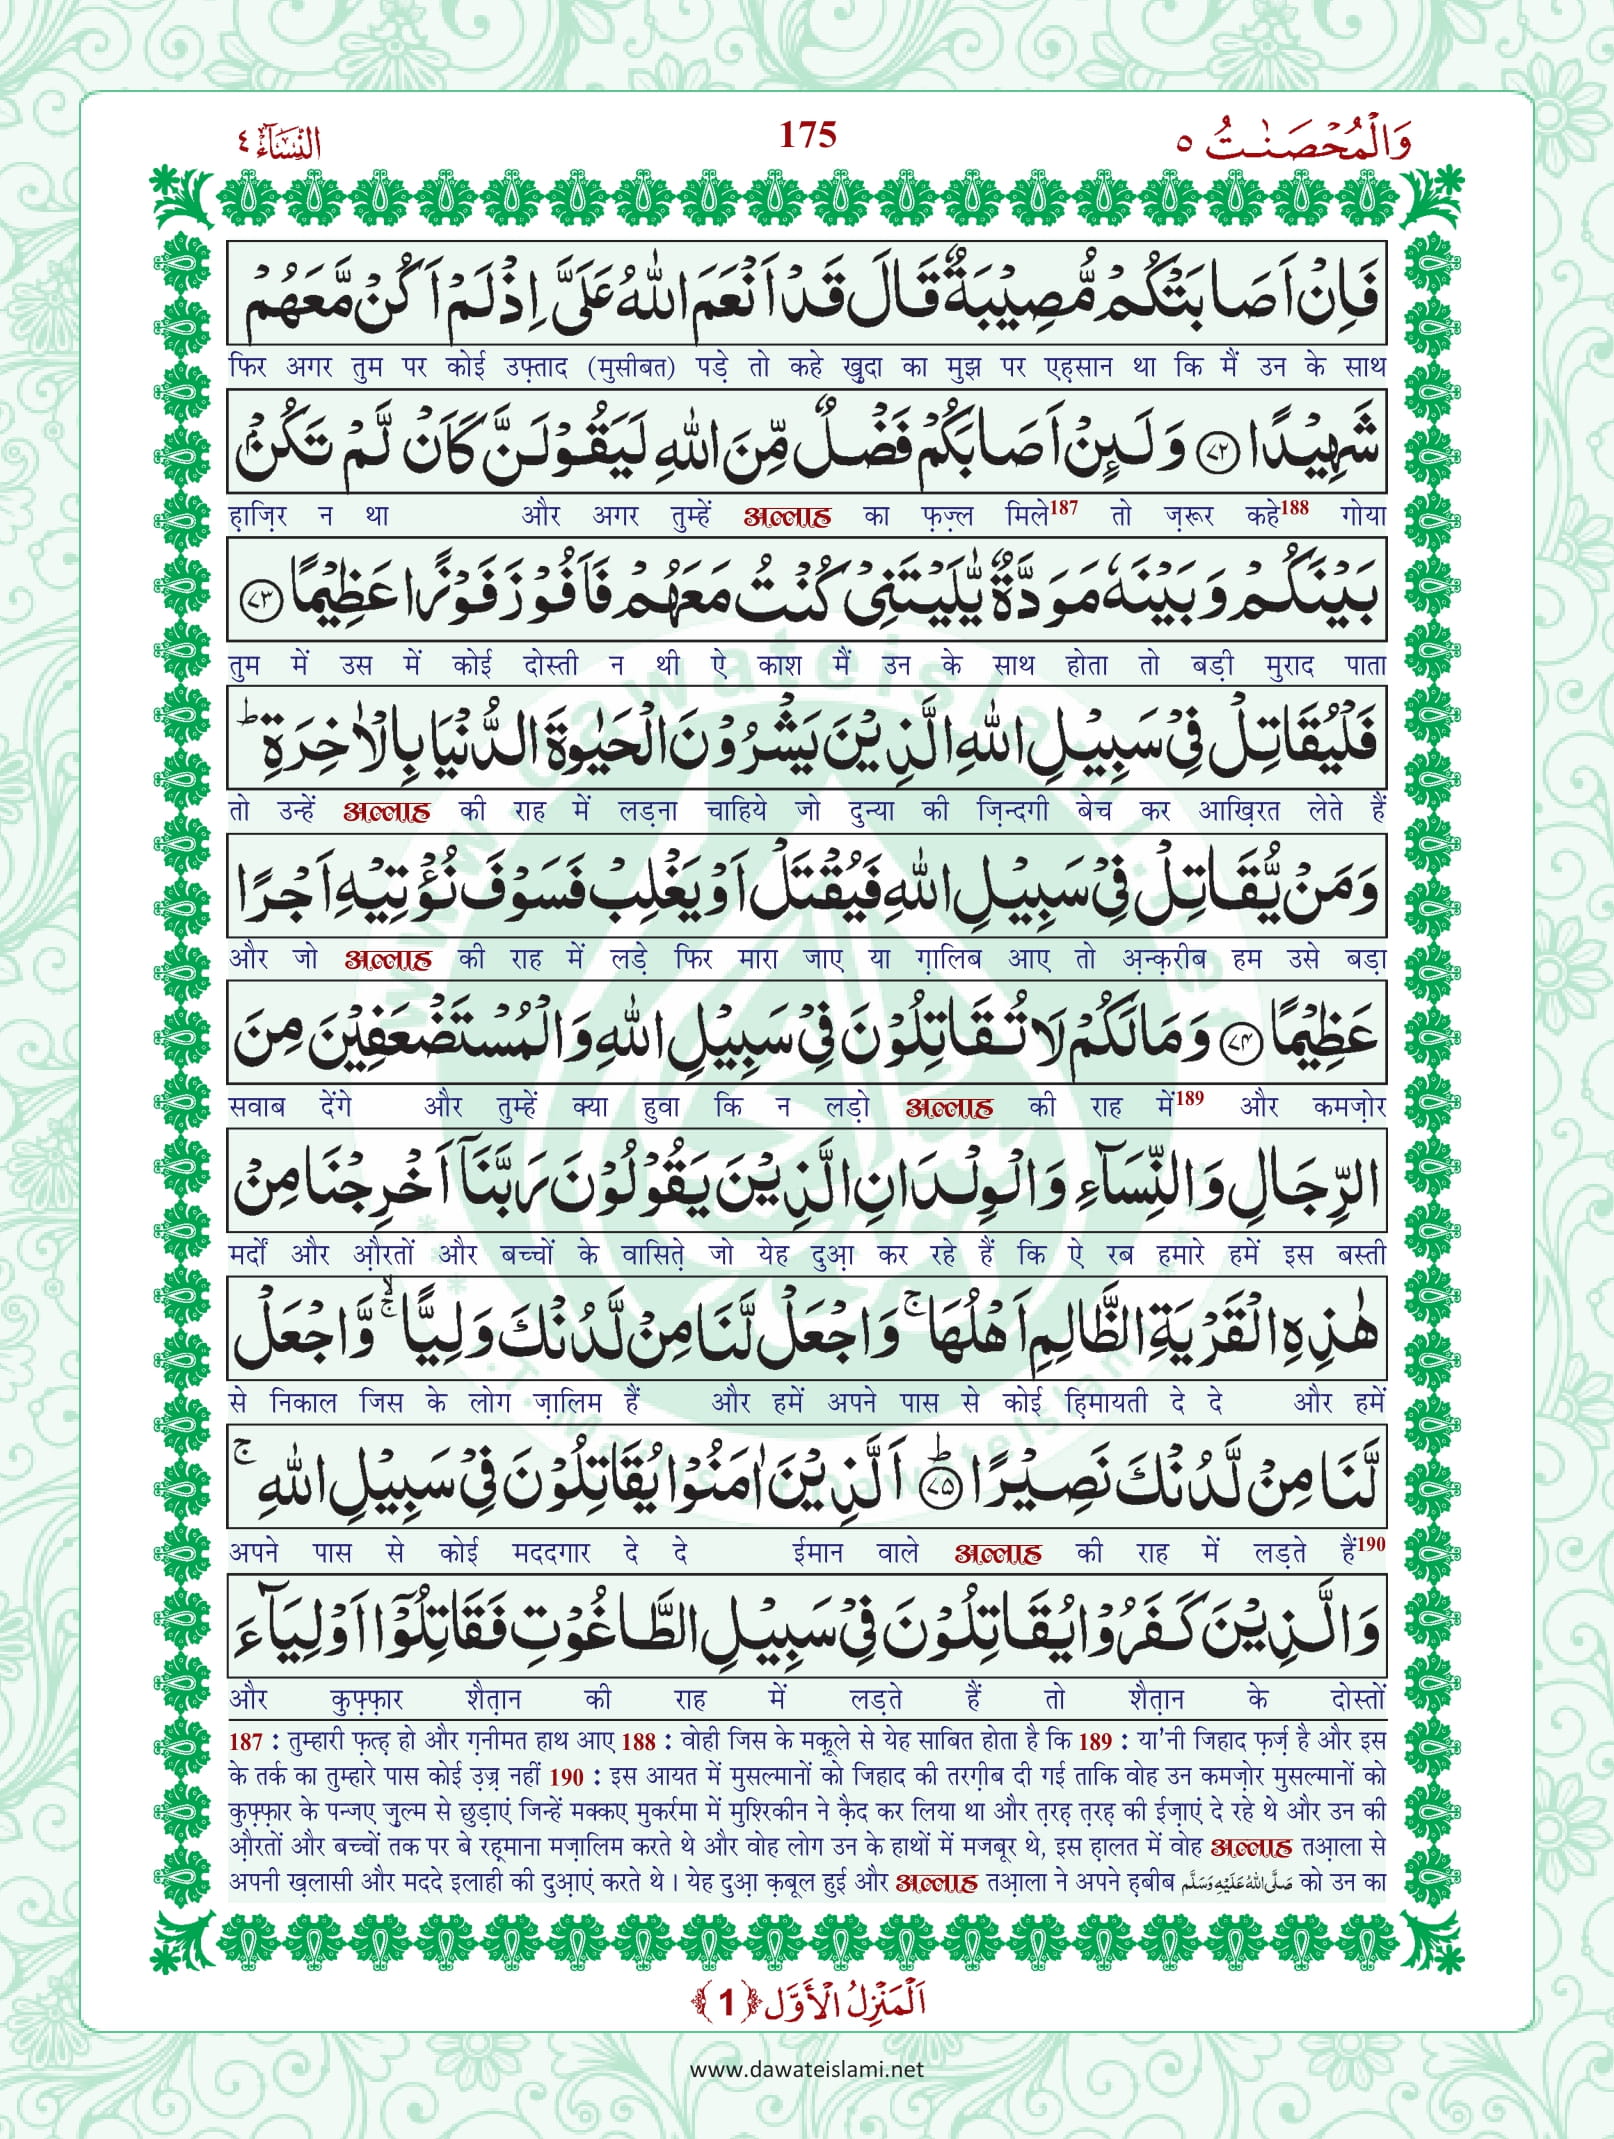 وَالْمُحْصَنٰتُ ٥ 175 النِّسَآء ٤
فَاِنْ اَصَابَتْكُمْ مُّصِیْبَةٌ قَالَ قَدْ اَنْعَمَ اللّٰهُ عَلَیَّ اِذْ لَمْ اَكُنْ مَّعَهُمْ
फिर अगर तुम पर कोई उफ़्ताद (मुसीबत) पड़े तो कहे ख़ुदा का मुझ पर एह़सान था कि मैं उन के साथ
شَهِیْدًا ﴿۷۲﴾ وَ لَىٕنْ اَصَابَكُمْ فَضْلٌ مِّنَ اللّٰهِ لَیَقُوْلَنَّ كَاَنْ لَّمْ تَكُنْۢ
ह़ाज़िर न था और अगर तुम्हें अल्लाह का फ़ज़्ल मिले187 तो ज़रूर कहे188 गोया
بَیْنَكُمْ وَ بَیْنَهٗ مَوَدَّةٌ یّٰلَیْتَنِیْ كُنْتُ مَعَهُمْ فَاَفُوْزَ فَوْزًا عَظِیْمًا ﴿۷۳﴾
तुम में उस में कोई दोस्ती न थी ऐ काश मैं उन के साथ होता तो बड़ी मुराद पाता
فَلْیُقَاتِلْ فِیْ سَبِیْلِ اللّٰهِ الَّذِیْنَ یَشْرُوْنَ الْحَیٰوةَ الدُّنْیَا بِالْاٰخِرَةِ ؕ
तो उन्हें अल्लाह की राह में लड़ना चाहिये जो दुन्या की ज़िन्दगी बेच कर आख़िरत लेते हैं
وَ مَنْ یُّقَاتِلْ فِیْ سَبِیْلِ اللّٰهِ فَیُقْتَلْ اَوْ یَغْلِبْ فَسَوْفَ نُؤْتِیْهِ اَجْرًا
और जो अल्लाह की राह में लड़े फिर मारा जाए या ग़ालिब आए तो अ़न्क़रीब हम उसे बड़ा
عَظِیْمًا ﴿۷۴﴾ وَ مَا لَكُمْ لَا تُقَاتِلُوْنَ فِیْ سَبِیْلِ اللّٰهِ وَ الْمُسْتَضْعَفِیْنَ مِنَ
सवाब देंगे और तुम्हें क्या हुवा कि न लड़ो अल्लाह की राह में189 और कमज़ोर
الرِّجَالِ وَ النِّسَآءِ وَ الْوِلْدَانِ الَّذِیْنَ یَقُوْلُوْنَ رَبَّنَاۤ اَخْرِجْنَا مِنْ
मर्दों और औ़रतों और बच्चों के वासित़े जो येह दुआ़ कर रहे हैं कि ऐ रब हमारे हमें इस बस्ती
هٰذِهِ الْقَرْیَةِ الظَّالِمِ اَهْلُهَا ۚ وَ اجْعَلْ لَّنَا مِنْ لَّدُنْكَ وَلِیًّا ۙۚ وَّ اجْعَلْ
से निकाल जिस के लोग ज़ालिम हैं और हमें अपने पास से कोई ह़िमायती दे दे और हमें
لَّنَا مِنْ لَّدُنْكَ نَصِیْرًا ؕ﴿۷۵﴾ اَلَّذِیْنَ اٰمَنُوْا یُقَاتِلُوْنَ فِیْ سَبِیْلِ اللّٰهِ ۚ
अपने पास से कोई मददगार दे दे ईमान वाले अल्लाह की राह में लड़ते हैं190
وَ الَّذِیْنَ كَفَرُوْا یُقَاتِلُوْنَ فِیْ سَبِیْلِ الطَّاغُوْتِ فَقَاتِلُوْۤا اَوْلِیَآءَ
और कुफ़्फ़ार शैत़ान की राह में लड़ते हैं तो शैत़ान के दोस्तों
187 : तुम्हारी फ़त्ह़ हो और ग़नीमत हाथ आए 188 : वोही जिस के मक़ूले से येह साबित होता है कि 189 : या'नी जिहाद फ़र्ज़ है और इस
के तर्क का तुम्हारे पास कोई उ़ज़्र नहीं 190 : इस आयत में मुसल्मानों को जिहाद की तरग़ीब दी गई ताकि वोह उन कमज़ोर मुसल्मानों को
कुफ़्फ़ार के पन्जए ज़ुल्म से छुड़ाएं जिन्हें मक्कए मुकर्रमा में मुश्रिकीन ने क़ैद कर लिया था और त़रह़ त़रह़ की ईज़ाएं दे रहे थे और उन की
औ़रतों और बच्चों तक पर बे रह़माना मज़ालिम करते थे और वोह लोग उन के हाथों में मजबूर थे, इस ह़ालत में वोह अल्लाह तआ़ला से
अपनी ख़लासी और मददे इलाही की दुआ़एं करते थे । येह दुआ़ क़बूल हुई और अल्लाह तआ़ला ने अपने ह़बीब صَلَّى اللّٰهُ عَلَيْهِ وَسَلَّم को उन का
اَلْمَنْزِلُ الْاَوَّل ﴿1﴾
www.dawateislami.net